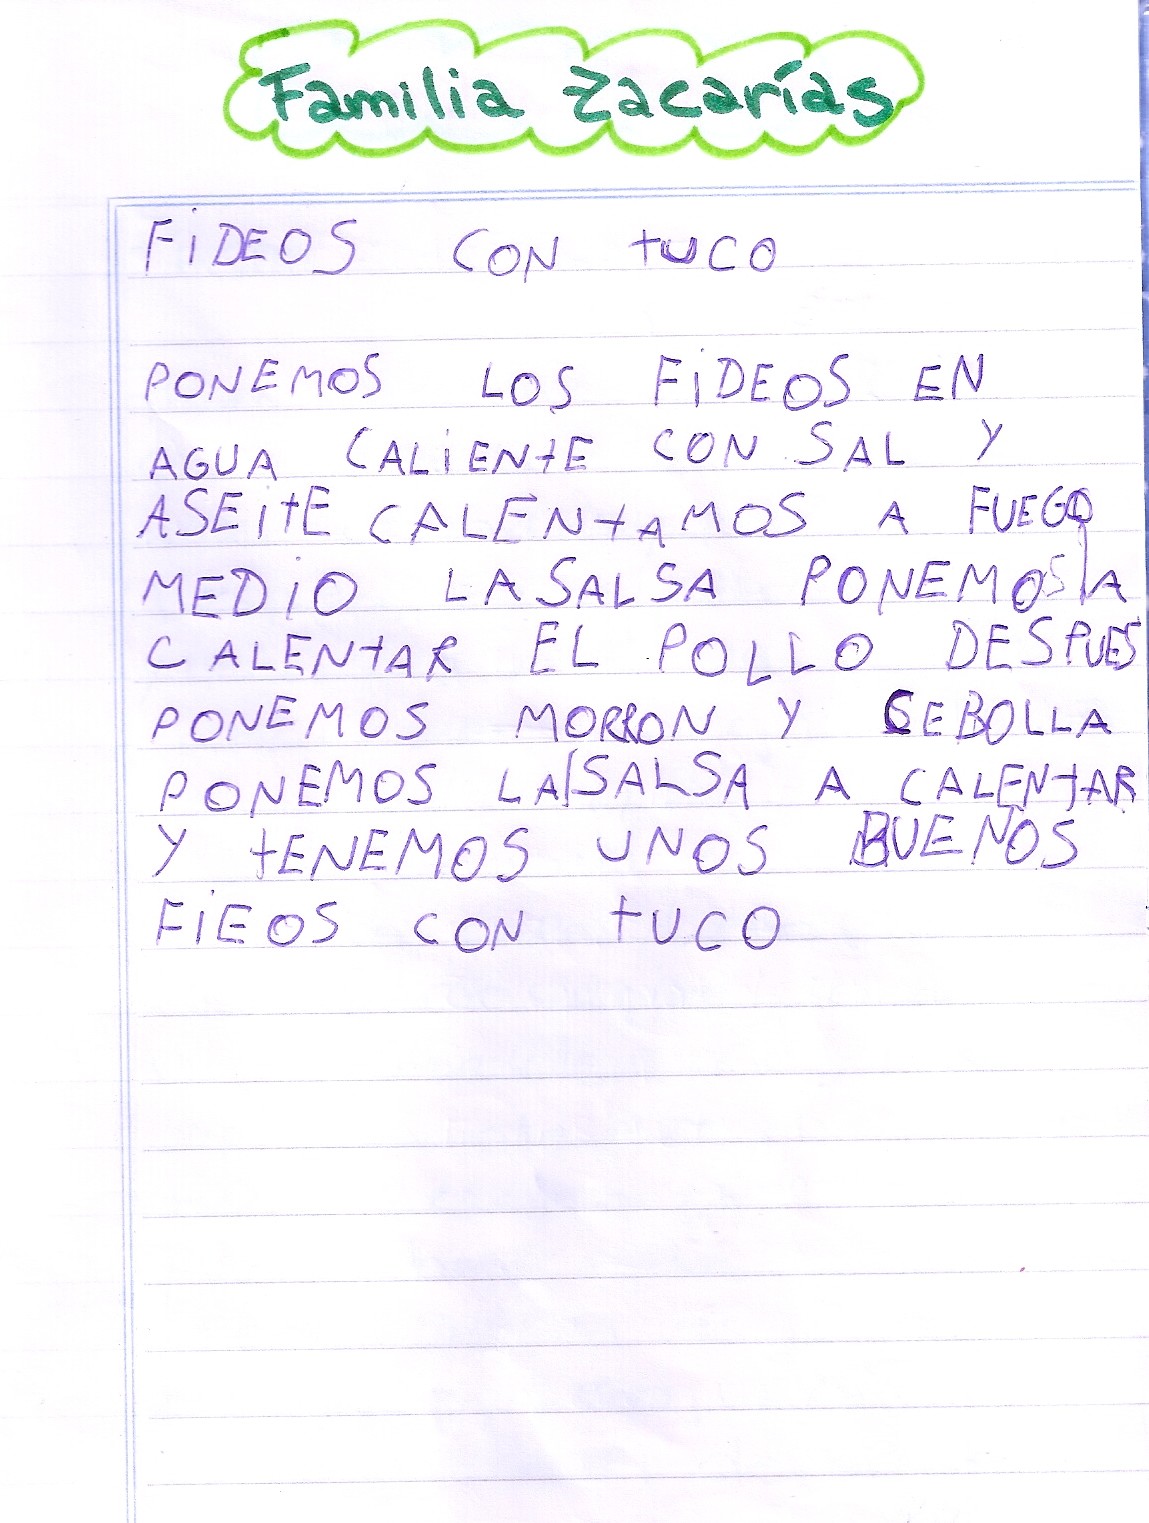 Familia Zacarías
FiDEOS CON tUCO
PONEMOS LOS FiDEOS EN
AGUA CALiENtE CON SAL Y
ASEitE CALENtAMOS A FUEGO
MEDiO LA SALSA PONEMOS A
CALENtAR EL POLLO DESPUES
PONEMOS MORRON Y CEBOLLA
PONEMOS LA SALSA A CALENtAR
Y tENEMOS UNOS BUENOS
FiEOS CON tUCO